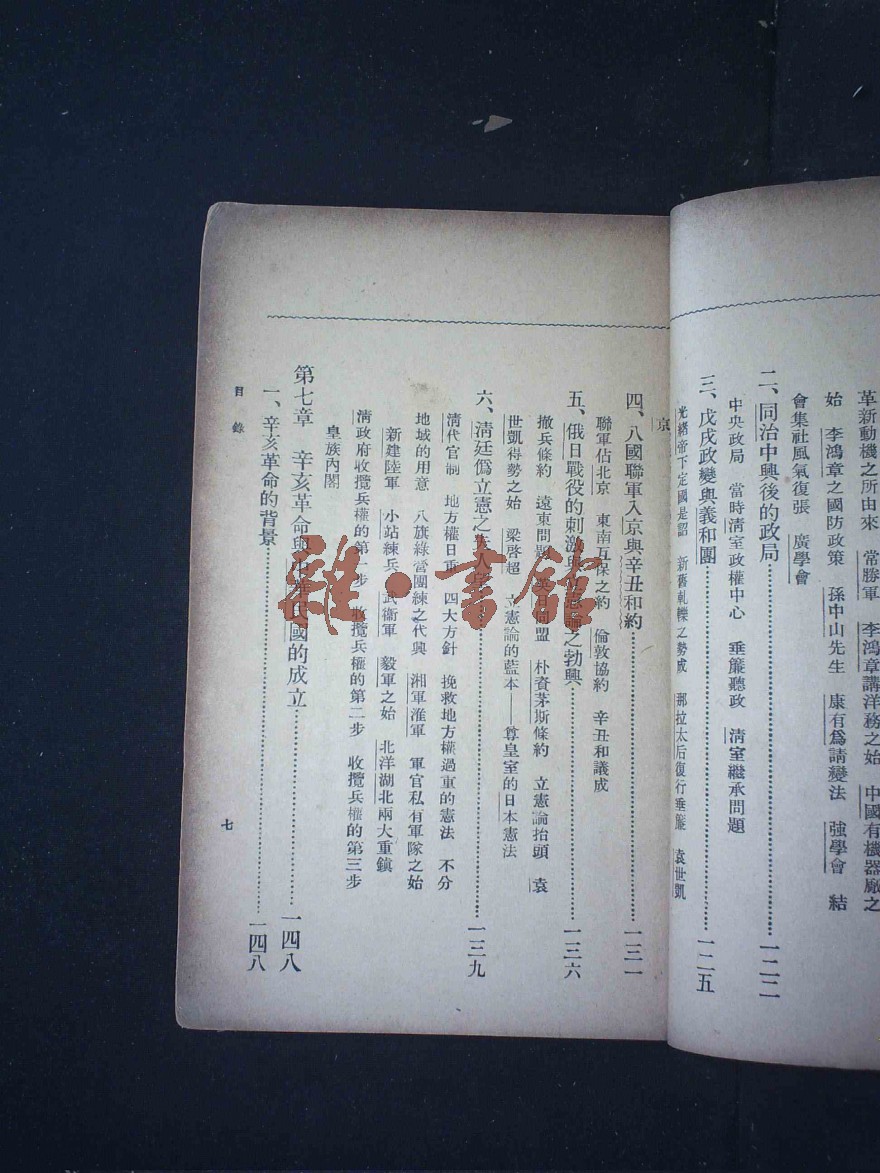 革新動機之所由來　常勝軍　李鴻章講洋務之始　中國有機器廠之
始　李鴻章之國防政策　孫中山先生　康有爲請變法　強學會　結
會集社風氣復張　廣學會
二、同治中興後的政局……一二二
中央政局　當時清室政權中心　垂簾聽政　清室繼承問題
三、戊戌政變與義和團……一二五
光緒帝下定國是詔　新舊軋轢之勢成　那拉太后復行垂簾　袁世凱
京
四、八國聯軍入京與辛丑和約……一三一
聯軍佔北京　東南互保之約　倫敦協約　辛丑和議成
五、俄日戰役的刺激與立憲論之勃興……一三六
撤兵條約　遠東問題　英日同盟　朴資茅斯條約　立憲論抬頭　袁
世凱得勢之始　梁啓超　立憲論的藍本——尊皇室的日本憲法
六、清廷僞立憲之……一三九
清代官制　地方權日重　四大方針　挽救地方權過重的憲法　不分
地域的用意　八旗綠營團練之代興　湘軍淮軍　軍官私有軍隊之始
新建陸軍　小站練兵　武衞軍　毅軍之始　北洋湖北兩大重鎮
清政府收攬兵權的第一步　收攬兵權的第二步　收攬兵權的第三步
皇族內閣
第七章　辛亥革命與中華民國的成立……一四八
一、辛亥革命的背景……一四八
目錄
七
雜·書館